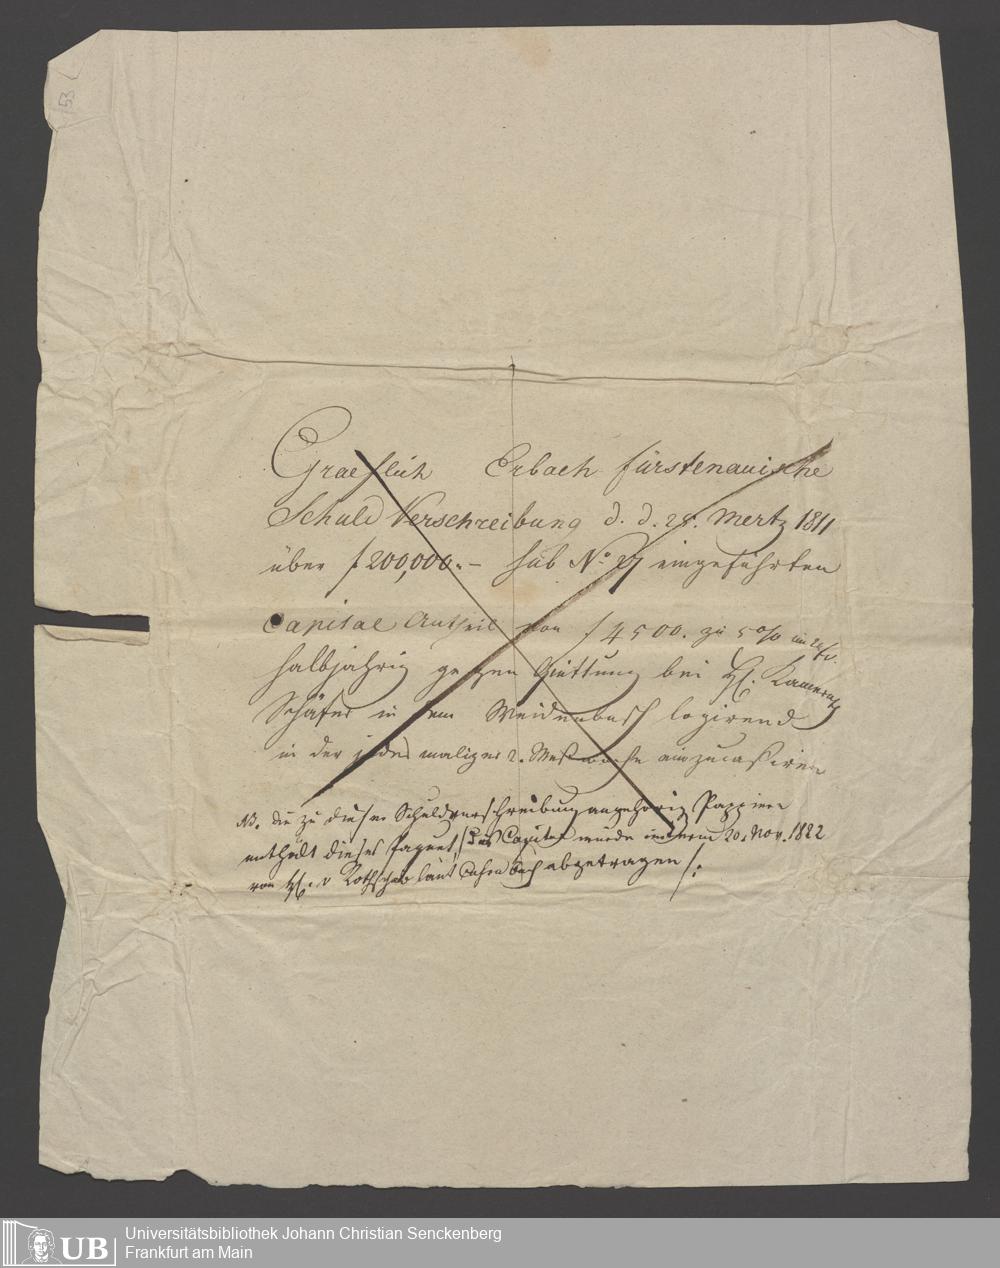 53
Graeflich Erbach fürstenauische
Schuld Verschreibung d. d. 28. Mertz 1811
über f 200,000.- sub No. 27 eingeführten
Capital Antheil von f 4500. zu 5 % im 24/fl.
halbjährig gegen Quittung bei H. Kammerath
Schäfer in dem Weidenbusch logirend
in der jedes maligen 2. Meßwoche einzucaßiren
NB. die zu dieser Schuldverschreibung angehörig Pappiere
enthält dieses Paquet, /: das Capital wurde unterm 20. Nov. 1822
von H. v Rothschild laut Cassa buch abgetragen /:
Universitätsbibliothek Johann Christian Senckenberg
Frankfurt am Main
UB